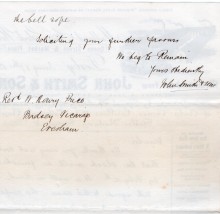 the bell rope
Soliciting your further favours
We beg to Remain
Yours Obediently
John Smith & Sons
Revd W Henry Price
Badsey Vicarage
Evesham